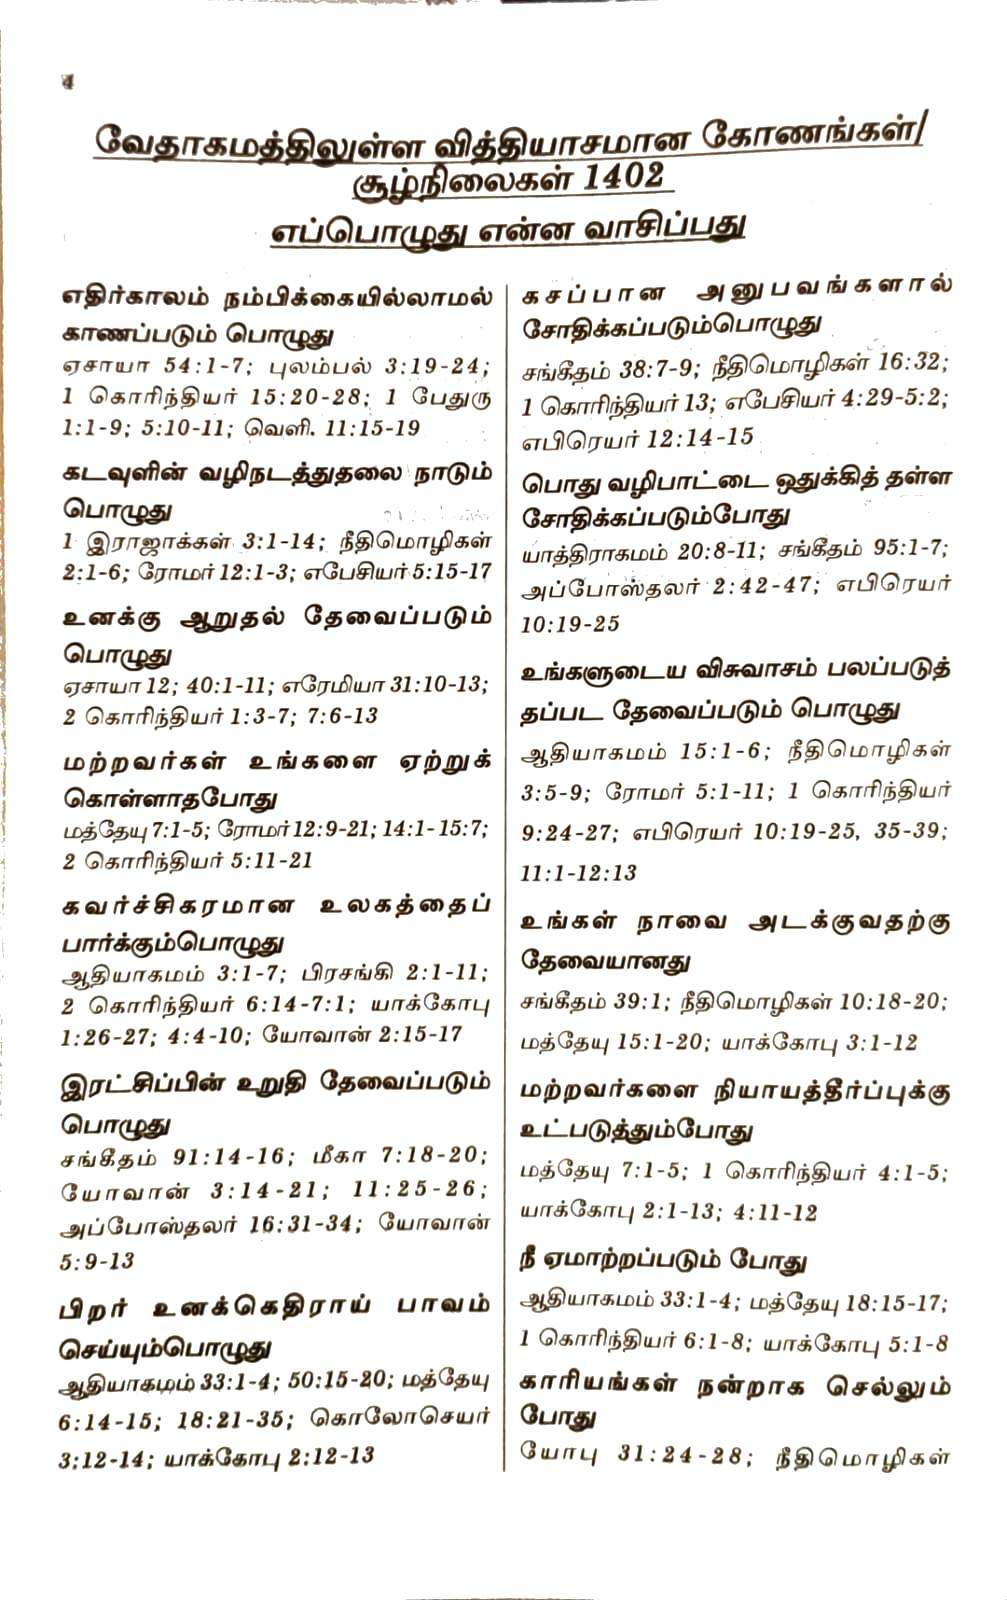 4
வேதாகமத்திலுள்ள வித்தியாசமான கோணங்கள்/
சூழ்நிலைகள் 1402
எப்பொழுது என்ன வாசிப்பது
எதிர்காலம் நம்பிக்கையில்லாமல்
காணப்படும் பொழுது
ஏசாயா 54:1-7; புலம்பல் 3:19-24;
1 கொரிந்தியர் 15:20-28; 1 பேதுரு
1:1-9; 5:10-11; வெளி. 11:15-19
கடவுளின் வழிநடத்துதலை நாடும்
பொழுது
1 இராஜாக்கள் 3:1-14; நீதிமொழிகள்
2:1-6; ரோமர் 12:1-3; எபேசியர் 5:15-17
உனக்கு ஆறுதல் தேவைப்படும்
பொழுது
ஏசாயா 12; 40:1-11; எரேமியா 31:10-13;
2 கொரிந்தியர் 1:3-7; 7:6-13
மற்றவர்கள் உங்களை ஏற்றுக்
கொள்ளாதபோது
மத்தேயு 7:1-5; ரோமர் 12:9-21; 14:1-15:7;
2 கொரிந்தியர் 5:11-21
கவர்ச்சிகரமான உலகத்தைப்
பார்க்கும்பொழுது
ஆதியாகமம் 3:1-7; பிரசங்கி 2:1-11;
2 கொரிந்தியர் 6:14-7:1; யாக்கோபு
1:26-27; 4:4-10; யோவான் 2:15-17
இரட்சிப்பின் உறுதி தேவைப்படும்
பொழுது
சங்கீதம் 91:14-16; மீகா 7:18-20;
யோவான் 3:14-21; 11:25-26;
அப்போஸ்தலர் 16:31-34; யோவான்
5:9-13
பிறர் உனக்கெதிராய் பாவம்
செய்யும்பொழுது
ஆதியாகமம் 33:1-4; 50:15-20; மத்தேயு
6:14-15; 18:21-35; கொலோசெயர்
3:12-14; யாக்கோபு 2:12-13
கசப்பான அனுபவங்களால்
சோதிக்கப்படும்பொழுது
சங்கீதம் 38:7-9; நீதிமொழிகள் 16:32;
1 கொரிந்தியர் 13; எபேசியர் 4:29-5:2;
எபிரெயர் 12:14-15
பொது வழிபாட்டை ஒதுக்கித் தள்ள
சோதிக்கப்படும்போது
யாத்திராகமம் 20:8-11; சங்கீதம் 95:1-7;
அப்போஸ்தலர் 2:42-47; எபிரெயர்
10:19-25
உங்களுடைய விசுவாசம் பலப்படுத்
தப்பட தேவைப்படும் பொழுது
ஆதியாகமம் 15:1-6; நீதிமொழிகள்
3:5-9; ரோமர் 5:1-11; 1 கொரிந்தியர்
9:24-27; எபிரெயர் 10:19-25, 35-39;
11:1-12:13
உங்கள் நாவை அடக்குவதற்கு
தேவையானது
சங்கீதம் 39:1; நீதிமொழிகள் 10:18-20;
மத்தேயு 15:1-20; யாக்கோபு 3:1-12
மற்றவர்களை நியாயத்தீர்ப்புக்கு
உட்படுத்தும்போது
மத்தேயு 7:1-5; 1 கொரிந்தியர் 4:1-5;
யாக்கோபு 2:1-13; 4:11-12
நீ ஏமாற்றப்படும் போது
ஆதியாகமம் 33:1-4; மத்தேயு 18:15-17;
1 கொரிந்தியர் 6:1-8; யாக்கோபு 5:1-8
காரியங்கள் நன்றாக செல்லும்
போது
யோபு 31:24-28; நீதிமொழிகள்